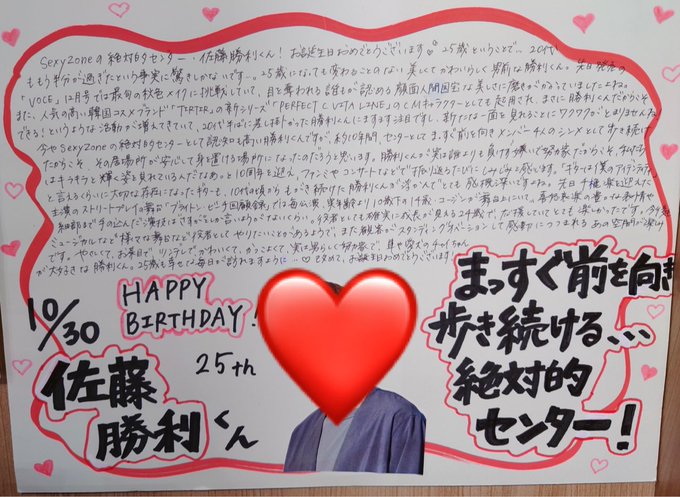 SexyZoneの絶対的センター・佐藤勝利くん！お誕生日おめでとうございます 25歳ということで… 20代
ももう半分が過ぎたという事実に驚きしかないです…25歳になっても変わることのない美しくてかわいらしく男前な勝利くん。先日発売の
「VOCE」12月号では最旬の秋色メイクに挑戦していて、目を奪われる誰もが認める顔面人間国宝な美しさに磨きがかかっていましたよね。
また、人気の高い韓国コスメブランド「TIRTIRの新シリーズ「PERFECT C VITA LINE」のCMキャラクターとしても起用され、まさに勝利くんだからこそ
できる！というような活動が増えてきていて、20代そばに差し掛かった勝利くんにますます注目ですし、新たな一面を見れることにワクワクがとまりませんね
今やSexyZoneの絶対的センターとして認知も高い勝利くんですが、約10年間、センターとしてまっすぐ前を向きメンバー4人のシンメとして
だからこそ、その居場所が安心して身を置ける場所になったのだろうと思います。勝利くんが実は誰よりも負けず嫌いで努力家だからこそ、
はキラキラと輝く姿を見れているんだなあと10周年を迎え、ファンミやコンサートなどで
と言えるくらいに大切な存在になったギターも、10代の頃から
主演のストリートプレイの舞台「ブライトン・ビーチ回顧録」では毎公演、実年齢より10歳下の14歳・ユージンが舞台上にいて、
細部まで手の込んだ演技はさすがとしか言いようがないくらい。役者としても確実に成長が見える24歳で、
ミュージカルなど様々な舞台など役者としてやりたいことがあるようで、また観客がスタンディングオベーションして感動につつまれるあの空間が
です。やさしくて、お茶目で、ツンデレで、かわいくて、かっこよくて、実は男らしく努力家で、
が大好きな勝利くん。25歳も幸せな毎日が訪れますように…♡改めて、お誕生日おめでとうございます！
10/30
HAPPY
BIRTHDAY!
25th
佐藤
勝利くん
まっすぐ前を向き
歩き続ける、、、
絶対的
センター！